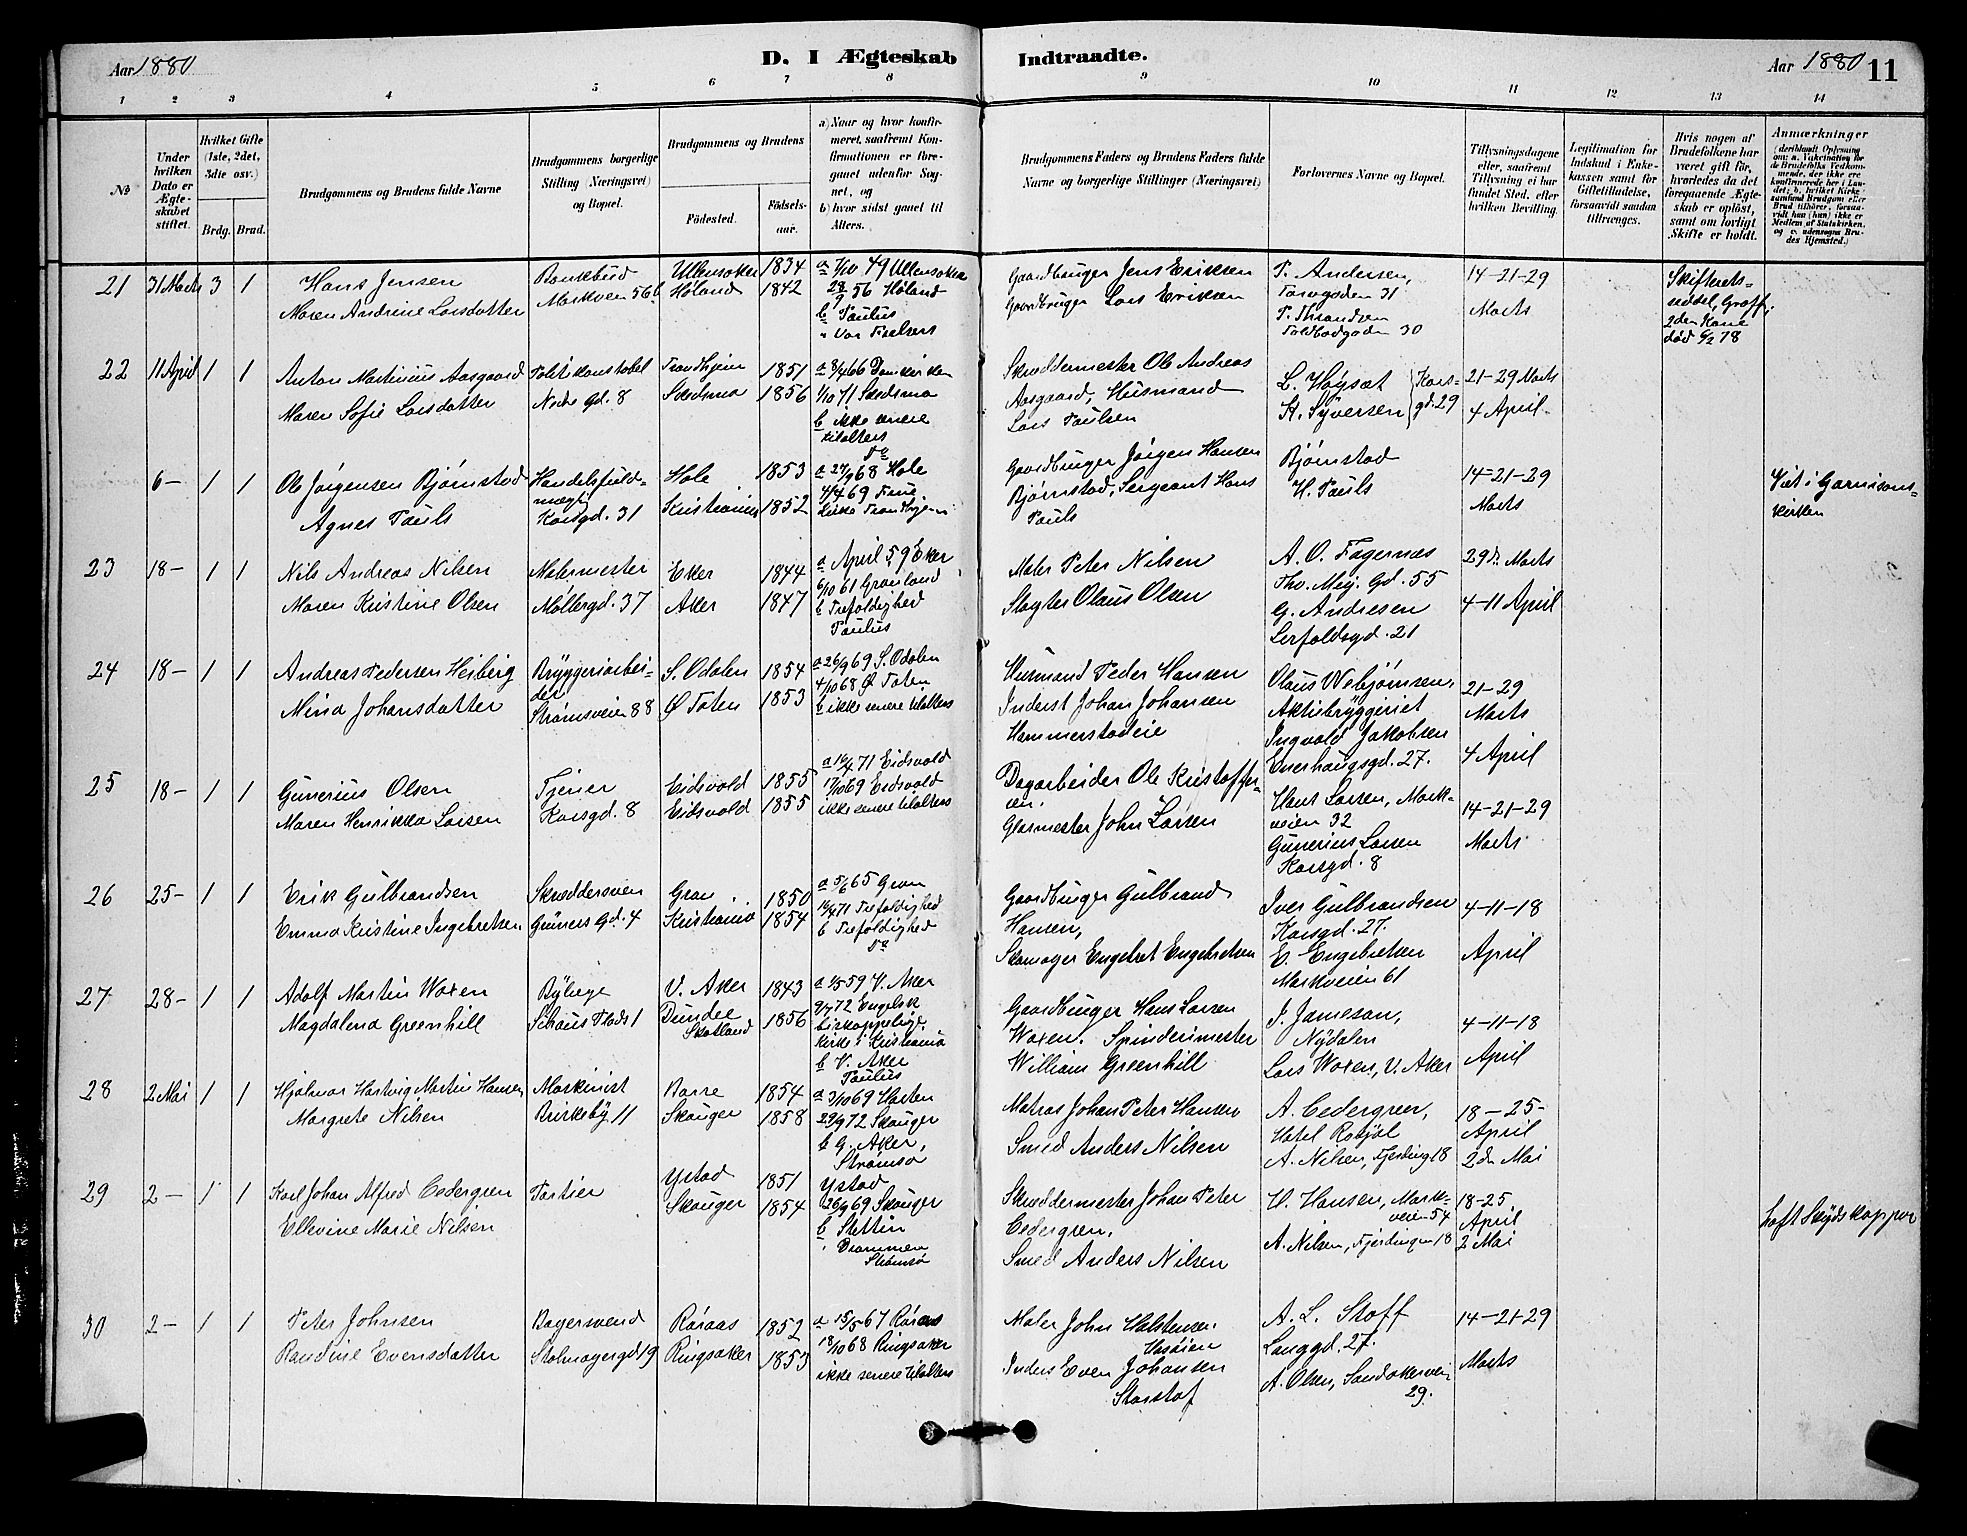 Aar 1880
D. I Ægteskab Indtraadte.
Aar 1880
11
1 2 3 4 5 6 7 8 9 10 11 12 13 14
No
Under hvilken Dato er Ægteskabet stiftet.
Hvilket Gifte (1ste, 2det, 3die osv.)
Brdg. Brud.
Brudgommens og Brudens fulde Navne
Brudgommens borgerlige Stilling (Næringsvei) og Bopæl.
Brudgommens og Brudens
Fødested. Fødselsaar.
a) Naar og hvor konfirmeret, saafremt Konfirmationen er foregaaet udenfor Sognet, og
b) hvor sidst gaaet til Alters.
Brudgommens Faders og Brudens Faders fulde Navne og borgerlige Stillinger (Næringsvei)
Forlovernes Navne og Bopæl.
Tillysningsdagene eller, saafremt Tillysning ei har fundet Sted, efter hvilken Bevilling.
Legitimation for Indskud i Enkekassen samt for Giftetilladelse, forsaavidt saadan tiltrænges.
Hvis nogen af Brudefolkene har været gift før, hvorledes da det foregaaende Ægteskab er opløst, samt om lovligt Skifte er holdt.
Anmærkninger
21 31 Marts 3 1
Hans Jensen
Maren Andrine Larsdatter
Markveien 56b
Ullensaker 1834
Høland 1842
a 7/10 49 Ullensaker
56 Høland
b Paulus
Vor Frelsers
Gaardbruger Jens Eriksen
Gaardbruger Lars Eriksen
P. Andersen,
Torvgaden 31
P. Thrandsen
Toldbodgaden 30
14-21-29
Marts
Skifterets-
seddel, Graff,
2den Kone
død 6/2 78
22 11 April 1 1
Anton Martinius Aasgaard
Maren Sofie Larsdatter
Politikonstabel
Nedre Gd. 8
Trondhjem 1851
Skedsmo 1856
a 8/4 66 Domkirken
1/10 71 Skedsmo
b ikke senere
tilalters
Skreddermester Ole Andreas
Aasgaard, Husmand
Lars Paulsen
L. Høysæt
K. Syversen
Kors-
gd. 29
21-29 Marts
4 April
6- 1 1
Ole Jørgensen Bjørnstad
Agnes Pauls
Handelsfuld-
mægt.
Korsgd. 31
Hole 1853
Kristiania 1852
a 27/9 68 Hole
4/4 69 Frue
kirke Trondhjem
Gaardbruger Jørgen Hansen
Bjørnstad, Sergeant Hans
Pauls
Bjørnstad
H. Pauls
14-21-29
Marts
Viet i Garnisons-
kirken
23 18- 1 1
Nils Andreas Nilsen
Maren Kristine Olsen
Malermester
Møllergd. 37
Eker 1844
Aker 1847
a April 59 Eker
6/10 61 Grønland
b Trefoldighed
Paulus
Maler Peter Nilsen
Slagter Olaus Olsen
A. O. Fagernæs
Thv. Mej. Gd. 55
G. Andresen
Lerfoldsgd. 21
29de Marts
4-11 April
24 18- 1 1
Andreas Pedersen Heiberg
Mina Johansdatter
Bryggeriarbei-
der
Strømsveien 88
S. Odalen 1854
Ø Toten 1853
a 26/9 69 S. Odalen
4/10 68 Ø Toten
b ikke senere tilalters
Husmand Peder Hansen
Inderst Johan Johansen
Hammerstadeie
Olaus Webjørnsen,
Aktiebryggeriet
Ingvald Jakobsen
Enerhaugsgd. 27.
21-29
Marts
4 April
25 18- 1 1
Gunerius Olsen
Maren Henrikka Larsen
Tjener
Korsgd. 8
Eidsvold 1855
Eidsvold 1855
a 16/4 71 Eidsvold
17/10 69 Eidsvold
ikke senere tilalters
Dagarbeider Ole Kristoffer-
sen.
Glasmester John Larsen
Hans Larsen, Mark-
veien 32
Gunerius Larsen
Korsgd. 8
14-21-29
Marts
26 25- 1 1
Erik Gulbrandsen
Emma Kristine Ingebretsen
Skreddersven
Grüners Gd. 4
Gran 1850
Kristiania 1854
a 5/6 65 Gran
16/4 71 Trefoldighed
b Trefoldighed
Do
Gaardbruger Gulbrand
Hansen,
Skomager Engebret Engebretsen
Iver Gulbrandsen
Korsgd. 27.
E. Engebretsen
Markveien 61
4-11-18
April
27 28- 1 1
Adolf Martin Woxen
Magdalena Greenhill
Schous Plads 1
V. Aker 1843
Dundee Skotland 1856
a 1/5 59 V. Aker
9/7 72 Engelsk
biskoppelige
Kirke i Kristiania
b V. Aker
Paulus
Gaardbruger Hans Larsen
Woxen. Spinderimester
William Greenhill
J. Jameson,
Nydalen
Lars Woxen, V. Aker
4-11-18
April
28 2 Mai 1 1
Hjalmar Hartvig Martin Hansen
Margrete Nilsen
Maskinist
Birkeby 11
Borre 1854
Skauger 1858
a 3/10 69 Horten
29/9 72 Skauger
b G. Aker,
Strømsø
Matros Johan Peter Hansen
Smed Anders Nilsen
A. Cedergren,
Hotel Royal
A. Nilsen, Fjerding 18
18-25-
April
2den Mai
29 2- 1 1
Karl Johan Alfred Cedergren
Ellevine Marie Nilsen
Portier
Ystad 1851
Skauger 1854
Ystad
26/9 69 Skauger
b Stettin
Drammen
Strømsø
Skreddermester Johan Peter
Cedergren,
Smed Anders Nilsen
H. Hansen, Mark-
veien 54
A. Nilsen, Fjerdingen 18
18-25.
April
2 Mai
haft Skydskopper
30 2- 1 1
Peter Johnsen
Randine Evensdatter
Bagersvend
Stolmagergd 19
Røraas 1852
Ringsaker 1853
a 15/5 67 Røraas
18/10 68 Ringsaker
ikke senere tilalters
Maler John Halstensen
Inderst Even Johansen
Storstof
A. L. Stoff
Langgd. 27.
A. Olsen, Sandakerveien
29.
14-21-29
Marts